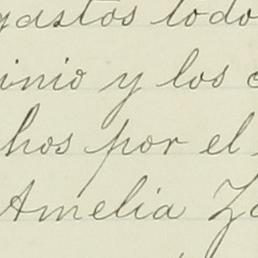 gastos todo
inio y los
hos por el
Amelia